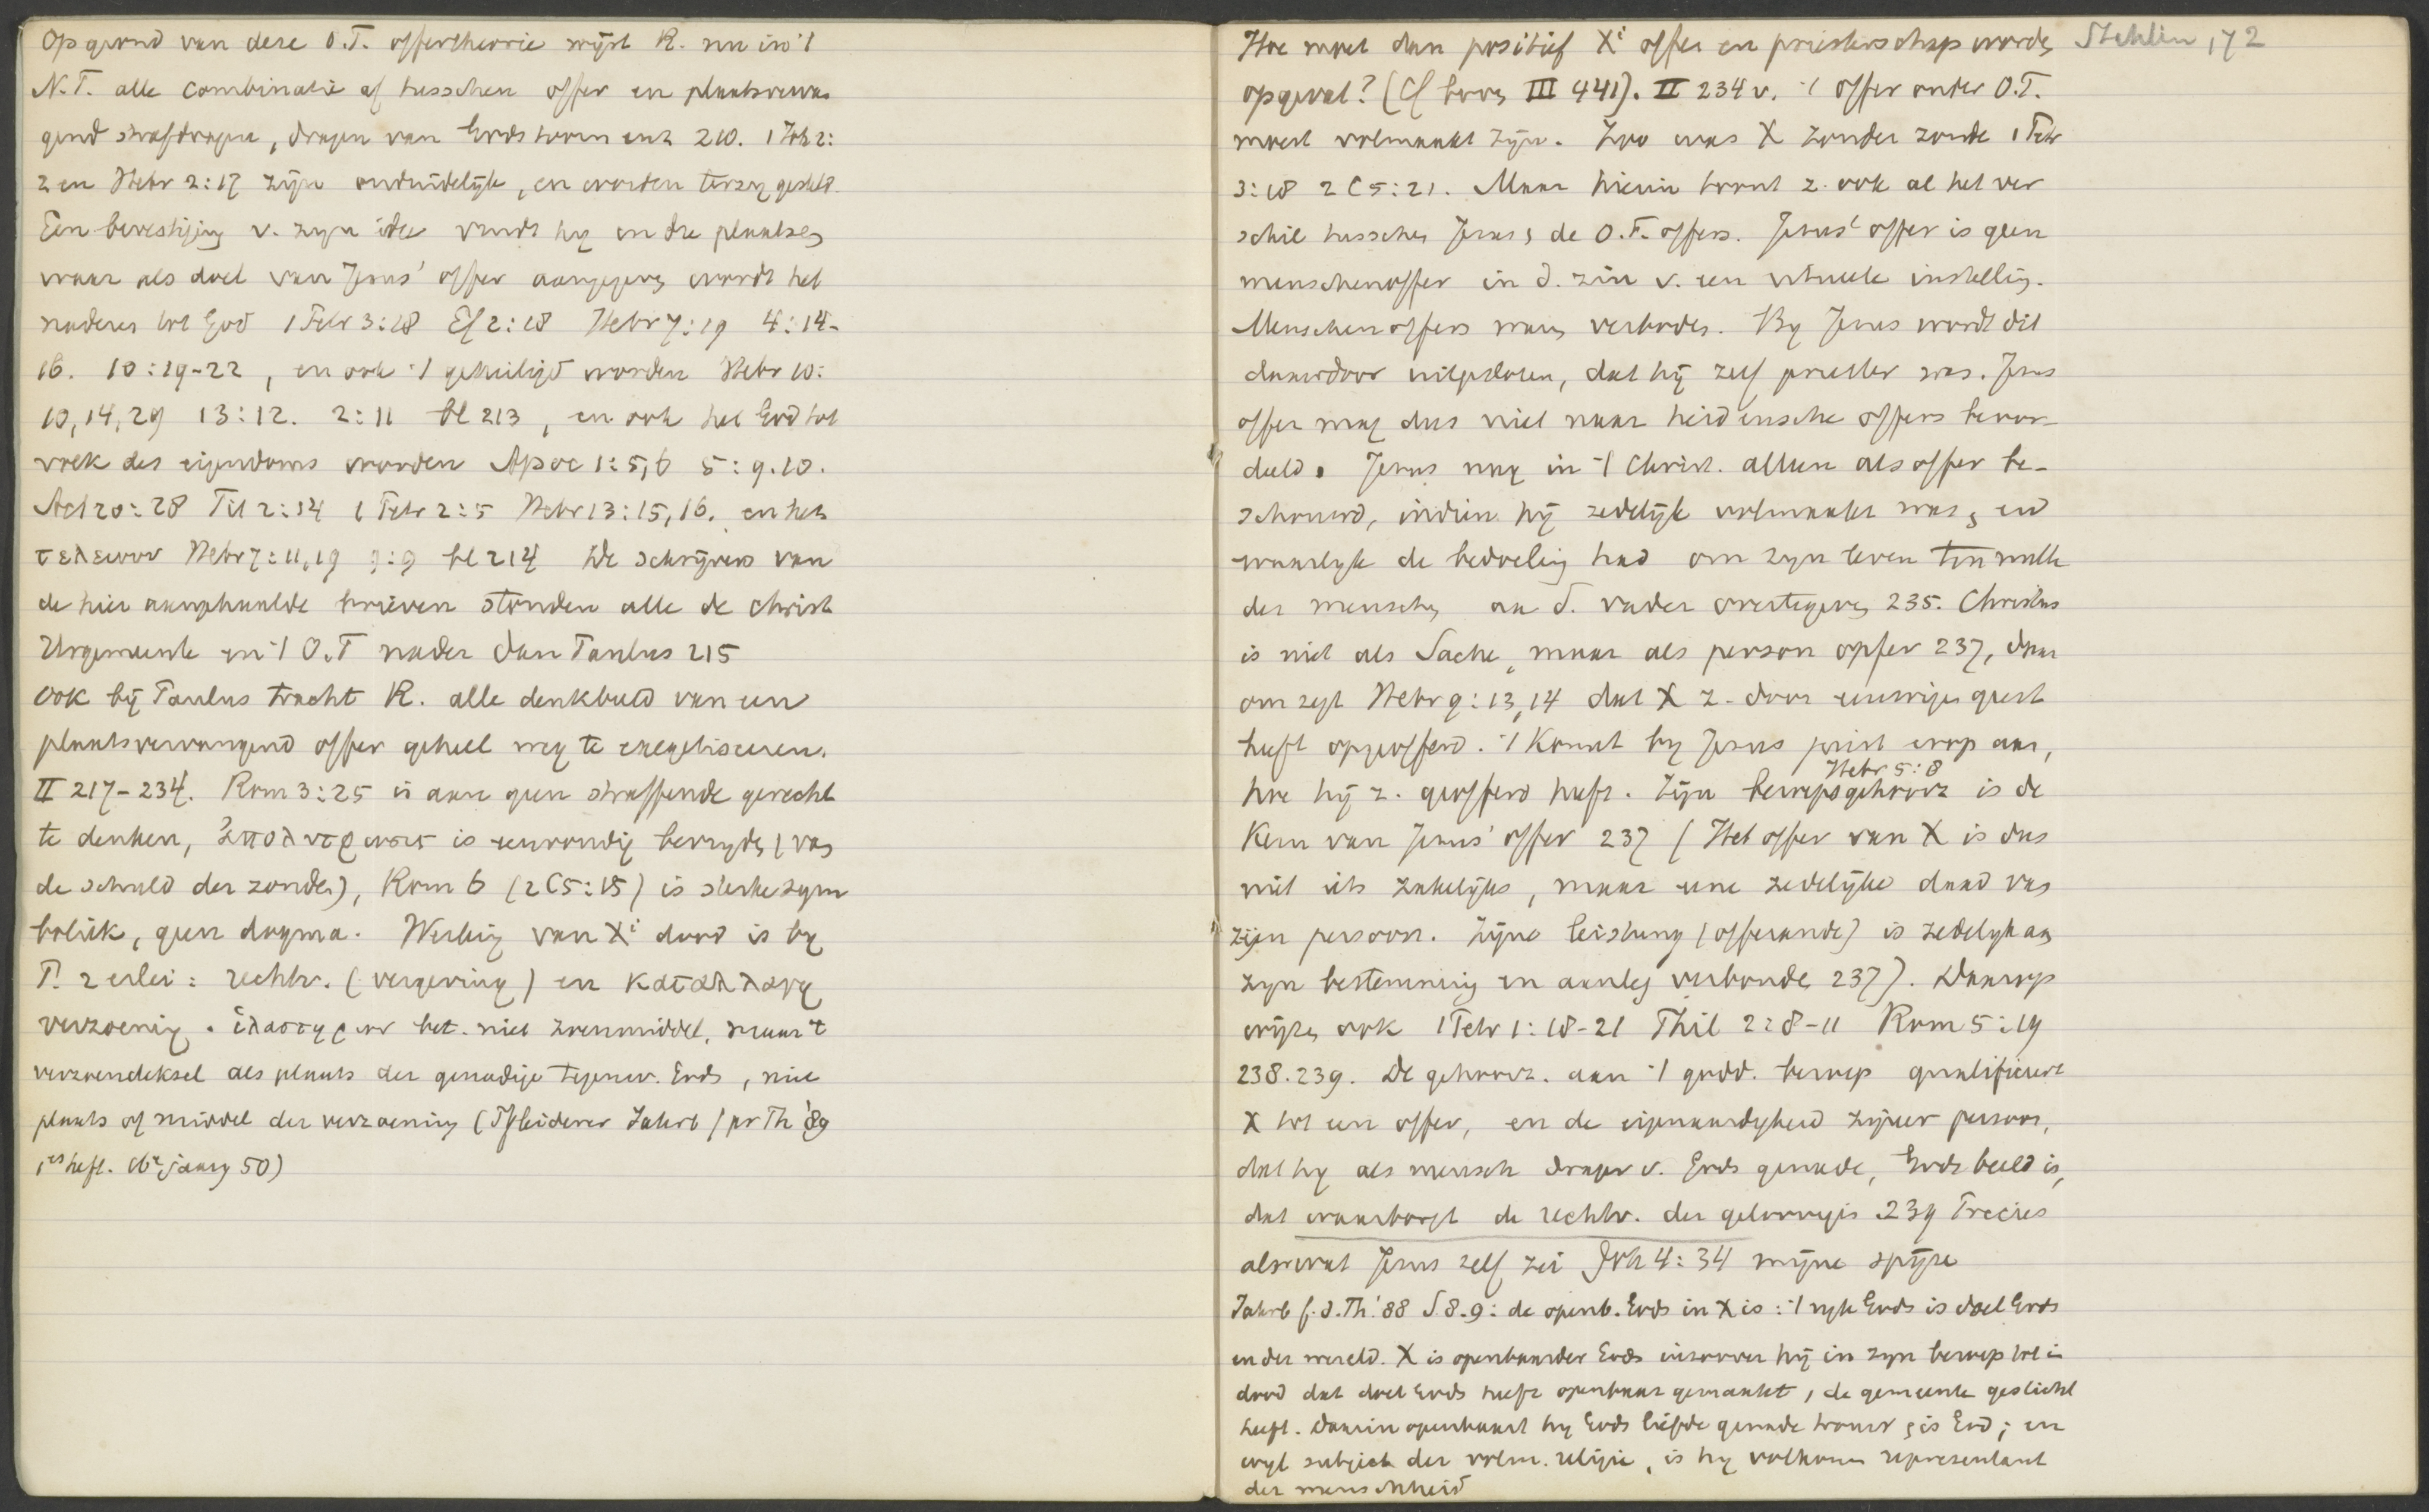 Op grond van deze O.T. offertheorie wijst R. nu in 't
N.T. alle combinatie af tusschen offer en plaatsvervan
gend strafdragen, dragen van Gods toorn enz 210. 1 Joh 2:
2 en Hebr 2:17 zijn onduidelijk, en worden terzij gesteld.
Een bevestiging v. zijn idee vindt hij in die plaatsen
waar als doel van Jezus' offer aangegeven wordt het
naderen tot God 1 Petr 3:18 Ef 2:18 Hebr 7:19 4:14-
16. 10:19-22, en ook 't geheiligd worden Hebr 10:
10,14,29 13:12. 2:11 bl 213, en ook het God tot
volk des eigendoms worden Apoc 1:5,6 5:9.10.
Act 20:28 Tit 2:14 1 Petr 2:5 Hebr 13:15,16. en het
τελειουν Hebr 7:11,19 9:9 bl 214 De schrijvers van
de hier aangehaalde brieven stonden alle de christ
Urgemeente en 't O.T nader dan Paulus 215
Ook bij Paulus tracht R. alle denkbeeld van een
plaatsvervangend offer geheel weg te exegetiseeren.
II 217-234. Rom 3:25 is aan geen straffende gerecht
te denken, ἀπολυτρωσις is eenvoudig bevrijden (van
de schuld der zonden), Rom 6 (2 C 5:15) is sterke sym
boliek, geen dogma. Werking van Xi dood is bij
P. 2 erlei: rechtv. (vergeving) en καταλλαγη
verzoening. ἱλαστηριον bet. niet zoenmiddel, maar 't
verzoendeksel als plaats der genadige tegenw. Gods, niet
plaats of middel der verzoening (Pfleiderer Jahrb f pr Th '89
1es heft. 16e jaarg 50)
Hoe moet dan positief Xi offer en priesterschap worden
opgevat? (Cf boven III 441). II 234 v. 't offer onder O.T.
moest volmaakt zijn. Zoo was X zonder zonde 1 Petr
3:18 2 C 5:21. Maar hierin toont z. ook al het ver
schil tusschen Jezus & de O.T. offers. Jezus' offer is geen
menschenoffer in d. zin v. een ritueele instelling.
Menschenoffers waren verboden. Bij Jezus wordt dit
daardoor uitgesloten, dat hij zelf priester was. Jezus
offer mag dus niet naar heidensche offers beoor
deeld. Jezus mag in 't Christ. alleen als offer be-
schouwd, indien hij zedelijk volmaakt was, en
waarlijk de bedoeling had om zijn leven ten nutte
der menschen aan d. vader over te geven 235. Christus
is niet als Sache, maar als person opfer 237, daar
om zegt Hebr 9:13,14 dat X z. door eeuwigen geest
heeft opgeofferd. 't Komt bij Jezus juist erop aan,
hoe hij z. geofferd heeft. Zijn beroepsgehoorz Hebr 5:8 is de
Kern van Jezus' offer 237 (Het offer van X is dus
niet iets zakelijks, maar eene zedelijke daad van
zijn persoon. Zijne leistung (offerande) is zedelijk aan
zijn bestemming en aanleg verbonden 237). Daarop
wijzen ook 1 Petr 1:18-21 Phil 2:8-11 Rom 5:19
238.239. De gehoorz. aan 't godd. beroep qualificeert
X tot een offer, en de eigenaardigheid zijner persoon,
dat hij als mensch drager v. Gods genade, Gods beeld is,
dat waarborgt de rechtv. der geloovigen 239 Precies
alsof wat Jezus zelf zei Joh 4:34 mijne spijze
Jahrb f. d. Th. '88 S 8.9: de openb. Gods in X is: 't rijk Gods is doel Gods
en der wereld. X is openbaarder Gods inzoover hij in zijn beroep tot in
dood dat doel Gods heeft openbaar gemaakt, de gemeente gesticht
heeft. Daarin openbaart hij Gods liefde genade trouw & is God; en
wijl subject der volm. religie, is hij volkomen representant
der menschheid
Stehlin, 72